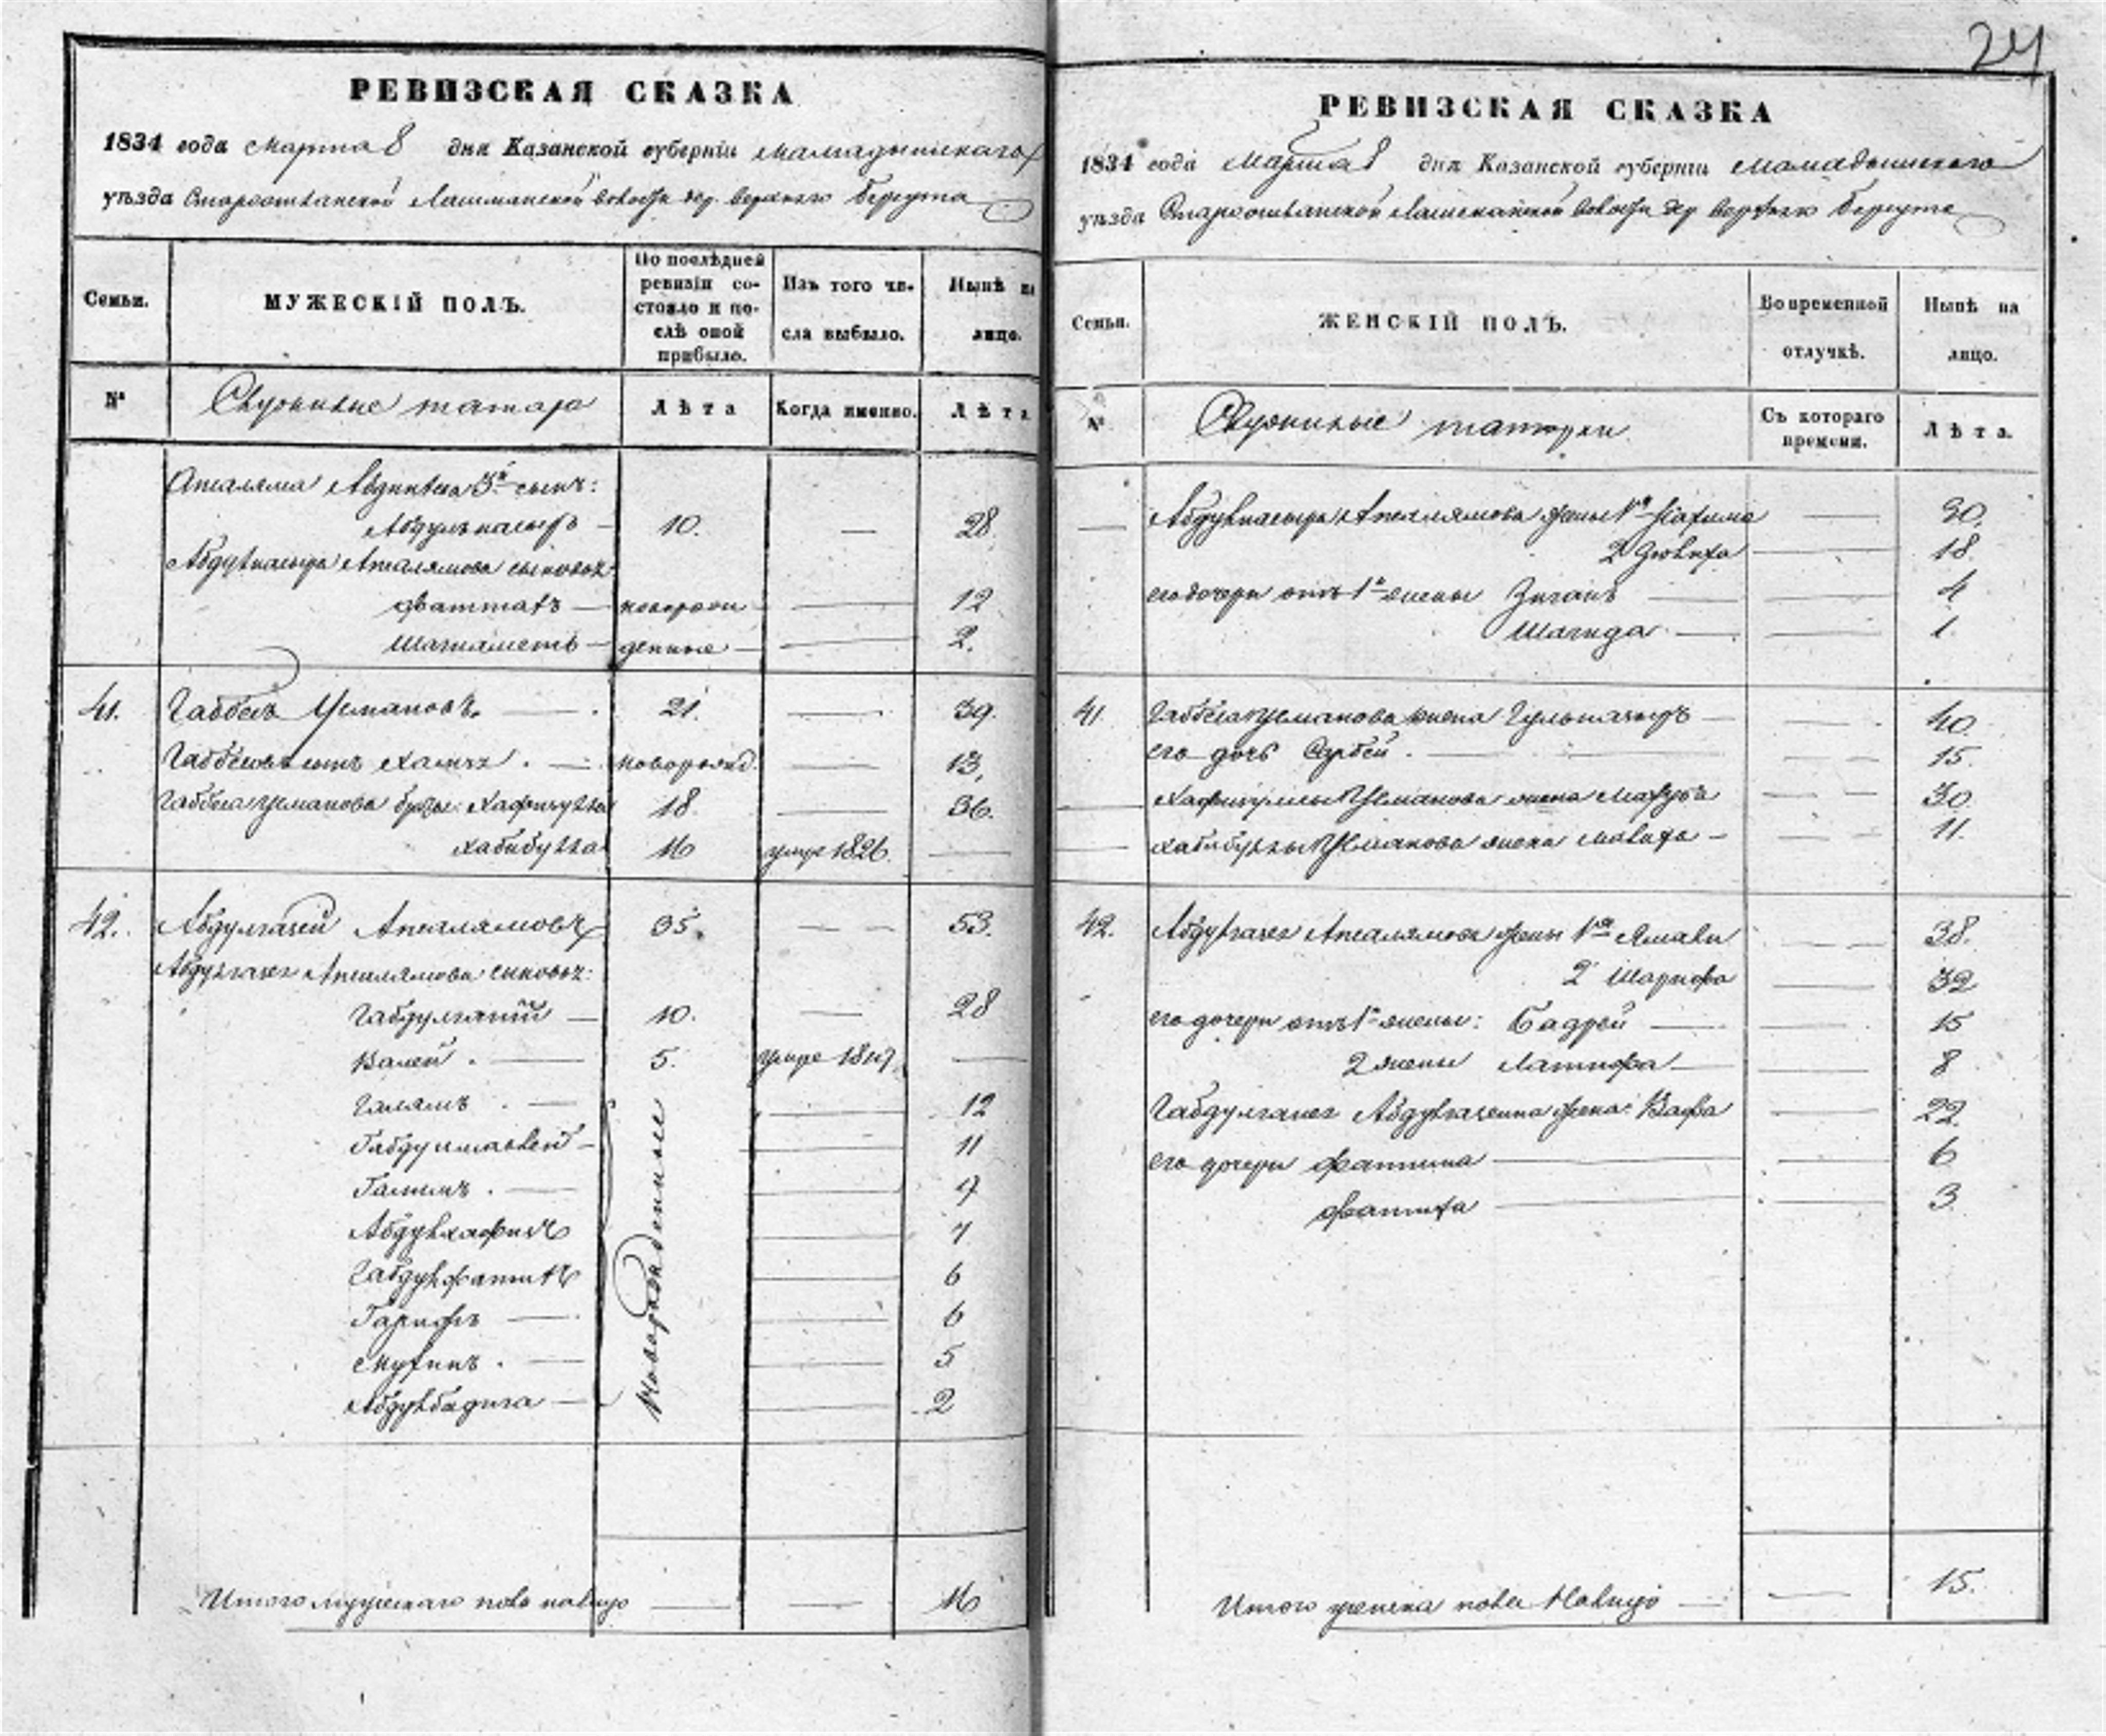 24
РЕВИЗСКАЯ СКАЗКА
1834 года Марта 8 дня Казанской губерніи Мамадышскаго
уѣзда Лашманской волости дер. Верхнего Берсута
Семьи.
МУЖЕСКІЙ ПОЛЪ.
По послѣдней ревизіи состояло и послѣ оной прибыло.
Изъ того числа выбыло.
Нынѣ на лицо.
№
Служилые татара
Лѣта
Когда именно.
Лѣта
Апселяма 3й сынъ:
Абдулнасыръ 10. — 28.
Абдулнасыра Апселямова сыновья:
Фаттахъ — новорож — 12
Шагиаметъ — денные — 2.
41. Габбасъ Усмановъ. 21. — 39.
Габбасовъ сынъ Хамза. — новорожд. — 13,
Габбаса Усманова братья: Хафизулла 18. — 36.
Хабибулла 16 умре 1826. —
42. Абдулгазей Апселямовъ 35. — 53.
Абдулгазея Апселямова сыновья:
Габдулганий — 10. — 28
Валей. — 5. умре 1817. —
Галямъ. — 12
— 11
Галимъ. — 7
Абдулхафизъ — 7
Габдулфаттахъ — 6
Гарифъ — 6
— 5
Абдулбадига — 2
Новорожденные
Итого мужескаго пола налицо — — 16
РЕВИЗСКАЯ СКАЗКА
1834 года Марта 8 дня Казанской губерніи Мамадышского
уѣзда Лашманской волости дер Верхнего Берсута
Семьи.
ЖЕНСКІЙ ПОЛЪ.
Во временной отлучкѣ.
Нынѣ на лицо.
№
Служилые татарки
Съ котораго времени.
Лѣта.
— Абдулнасыра Апселямова жены 1я — 30.
2 Зюлиха — 18.
его дочери отъ 1й жены — 4
Шагида — 1.
41 Габбаса Усманова жена — 40
его дочь — 15.
— Хафизуллы Усманова жена — 30
— Хабибуллы Усманова жена — 11.
42. Абдулгазея Апселямова жены 1я — 38.
2 Шарифа — 32
его дочери отъ 1й жены: Бадрей — 15
2 жены Латифа — 8
Габдулганея Абдулгазеина жена: Вафа — 22.
его дочери Фатима — 6
Фатиха — 3
Итого женска пола налицо — 15.